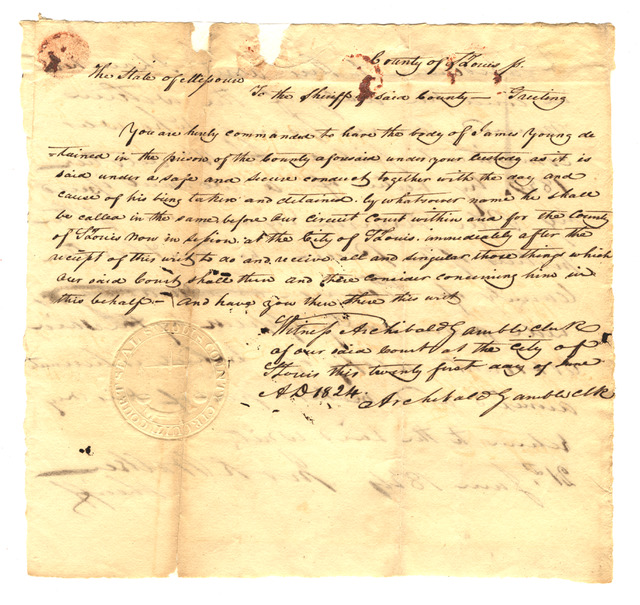 County of St Louis ss.
The State of Missouri
To the Sheriff of said County — Greeting
You are herby commanded to have the body of James Young de
tained in the prison of the County aforesaid under your custody as it is
said under a safe and secure conduct together with the day and
cause of his being taken and detained. by whatsoever name he shall
be called in the same before Our Circuit Court within and for the County
of St Louis now in session at the City of St Louis. immediately after the
receipt of this writ to do and receive all and singular those things which
Our said Court shall then and there consider concerning him in
this behalf — And have you then there this writ
Witness Archibald Gamble Clerk
of our said Court at the City of
St Louis this twenty first day of June
AD 1824
Archibald Gamble Clk